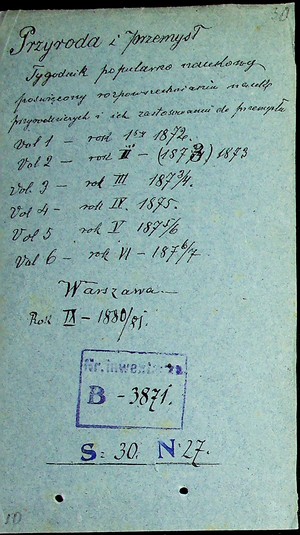 Przyroda i Przemysł
Tygodnik popularno naukowy
poświęcony rozpowszechnianiu nauk
przyrodniczych i ich zastosowaniu do przemysłu
Vol 1 – rok 1szy 1872.
Vol 2 – rok II – (1872) 1873
Vol. 3 – rok III 1873/4.
Vol 4 – rok IV 1875.
Vol 5 rok V 1875/6
Vol 6 – rok VI – 1876/7
Warszawa.—
Rok IX – 1880/81.
Nr. inwent.
B – 3871.
S: 30. N: 27.
10